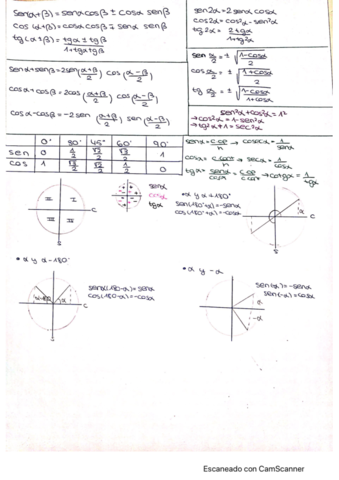 sen(α+β)= senα cosβ ± cosα senβ
cos(α+β)= cosα cosβ ∓ senα senβ
tg(α±β)= tgα ± tgβ / 1+tgα tgβ
sen2α= 2senα cosα
cos2α= cos²α - sen²α
tg2α= 2tgα / 1+tg²α
sen α/2 = ± √ 1-cosα / 2
cos α/2 = ± √ 1+cosα / 2
tg α/2 = ± √ 1-cosα / 1+cosα
senα+senβ= 2sen(α+β/2) cos(α-β/2)
cosα+cosβ= 2cos(α+β/2) cos(α-β/2)
cosα-cosβ= -2sen(α+β/2) sen(α-β/2)
sen²α+cos²α=1
→cos²α=1-sen²α
→tg²α+1=sec²α
0° 30° 45° 60° 90°
sen 0 1/2 √2/2 √3/2 1
cos 1 √3/2 √2/2 1/2 0
senα= → cosecα= 1/senα
cosα= → secα= 1/cosα
tgα= senα/cosα = → cotgα= 1/tgα
II I
III
C
S
senα
cosα
tgα
• α y α+180°
sen(180°+α)=-senα
cos(180°+α)=-cosα
C
S
• α y α-180°
sen(180-α)=senα
cos(180-α)=-cosα
α
C
S
• α y -α
sen(α)=-senα
sen(-α)=cosα
α
-α
Escaneado con CamScanner